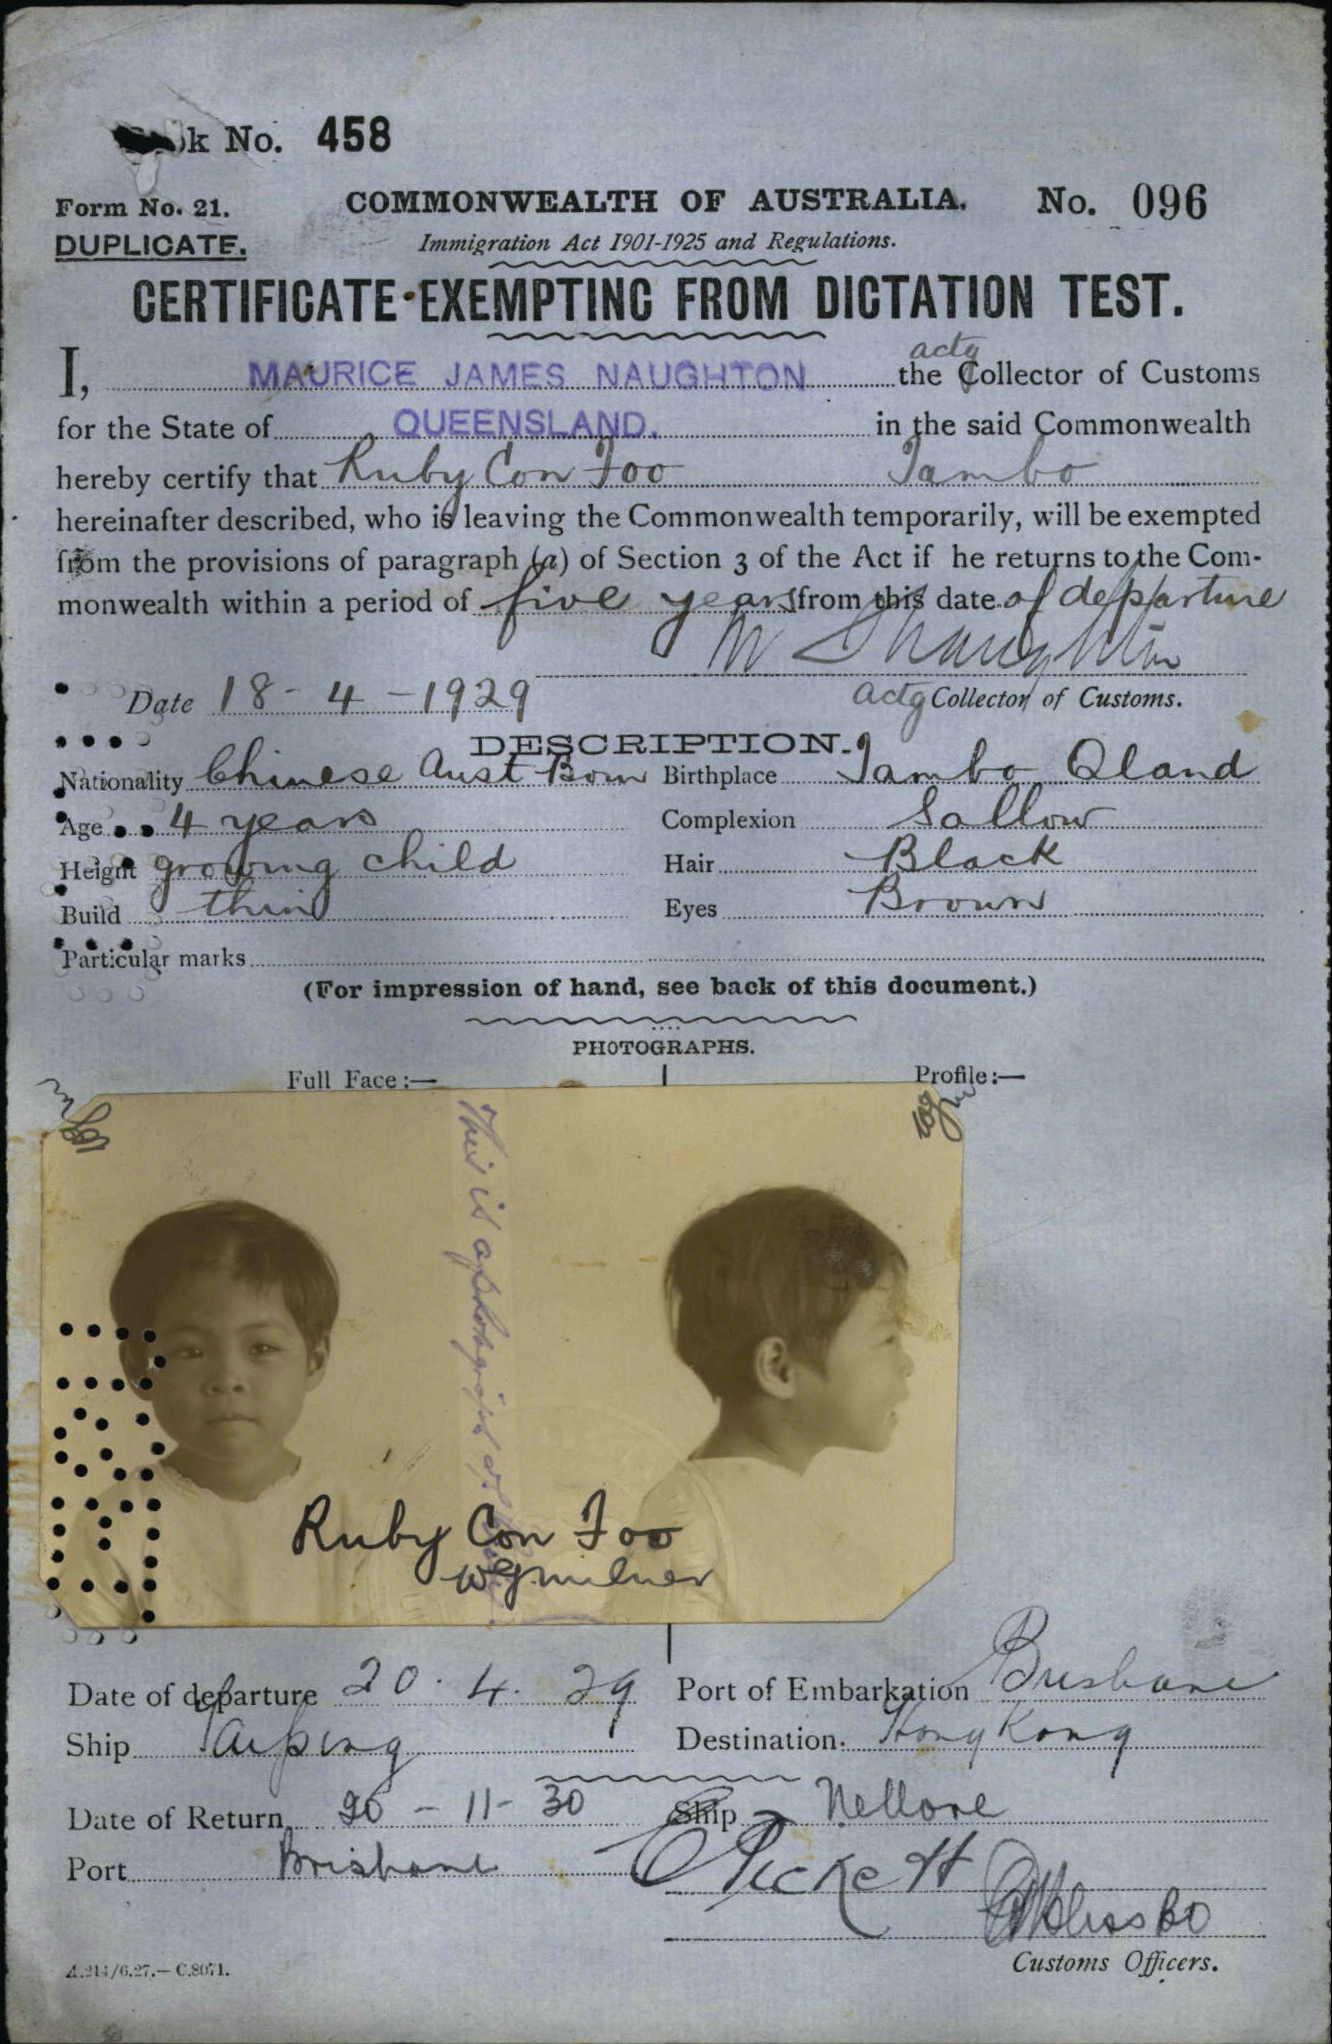 k No. 458
Form No. 21.
COMMONWEALTH OF AUSTRALIA. No. 096
DUPLICATE.
Immigration Act 1901-1925 and Regulations.
CERTIFICATE EXEMPTING FROM DICTATION TEST.
I, MAURICE JAMES NAUGHTON the actg Collector of Customs
for the State of QUEENSLAND. in the said Commonwealth
hereby certify that Ruby Con Foo Tambo
hereinafter described, who is leaving the Commonwealth temporarily, will be exempted
from the provisions of paragraph (a) of Section 3 of the Act if he returns to the Com-
monwealth within a period of five years from this date of departure
M J Naughton
Date 18-4-1929 actg Collector of Customs.
DESCRIPTION.
Nationality Chinese Aust Born Birthplace Tambo Qland
Age 4 years Complexion Sallow
Height growing child Hair Black
Build thin Eyes Brown
Particular marks
(For impression of hand, see back of this document.)
PHOTOGRAPHS.
Full Face:— Profile:—
This is a photograph of
Ruby Con Foo
W G Milner
Date of departure 20. 4. 29 Port of Embarkation Brisbane
Ship Taiping Destination. Hong Kong
Date of Return 20-11-30 Ship Nellore
Port Brisbane
Customs Officers.
A.214/6.27.—C.8071.